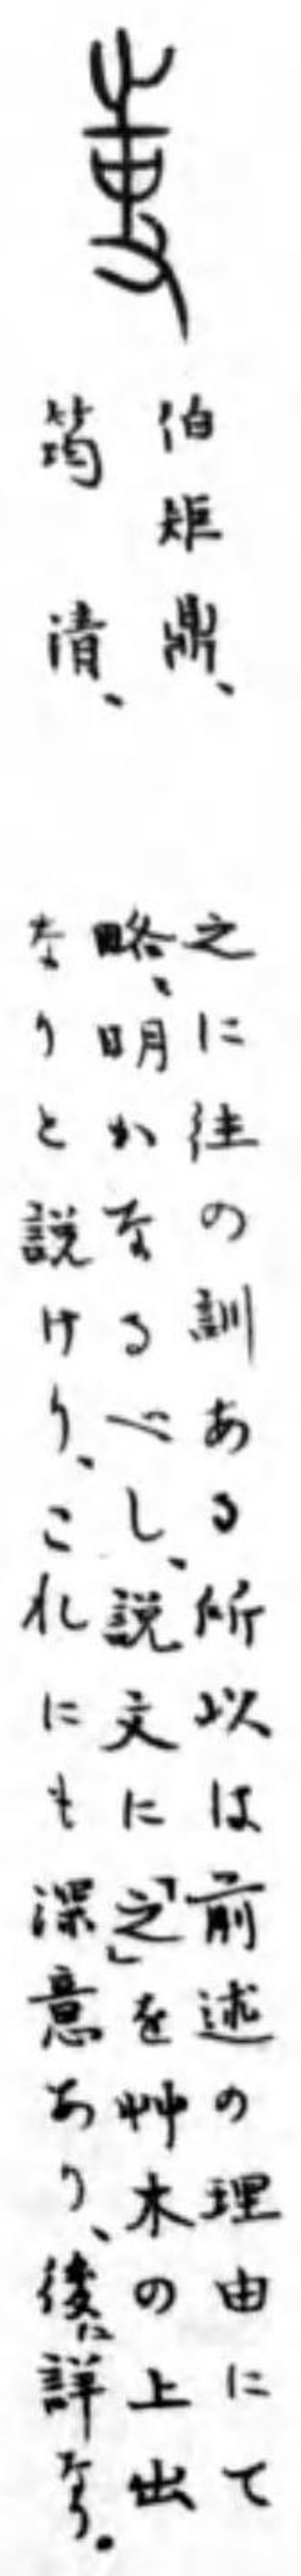 伯矩鼎、
筠清、
之に往の訓ある所以は前述の理由にて
略、明かなるべし、説文に「之」を艸木の上出
なりと説けり、これにも深意あり、後に詳なり。